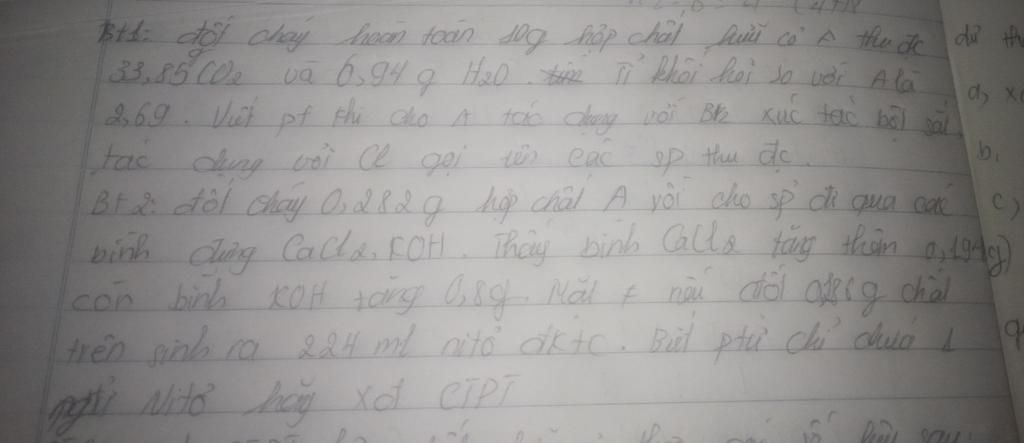 Bt1: đốt cháy hoàn toàn 10g hợp chất hữu cơ A thu đc
33,85g CO2 và 6,94g H2O. Tỉ khối hơi so với A là
2,69. Viết pt khi cho A tác dụng với Br2 xúc tác bột sắt,
tác dụng với Cl gọi tên các sp thu đc.
Bt2: đốt cháy 0,282g hợp chất A rồi cho sp đi qua các
bình đựng CaCl2, KOH. Thấy bình CaCl2 tăng thêm 0,194g
còn bình KOH tăng 0,8g. Mặt ≠ nếu đốt 0,186g chất
trên sinh ra 224 ml nitơ đktc. Biết ptử chỉ chứa 1
Nitơ hãy xđ CTPT
a,
b,
c,